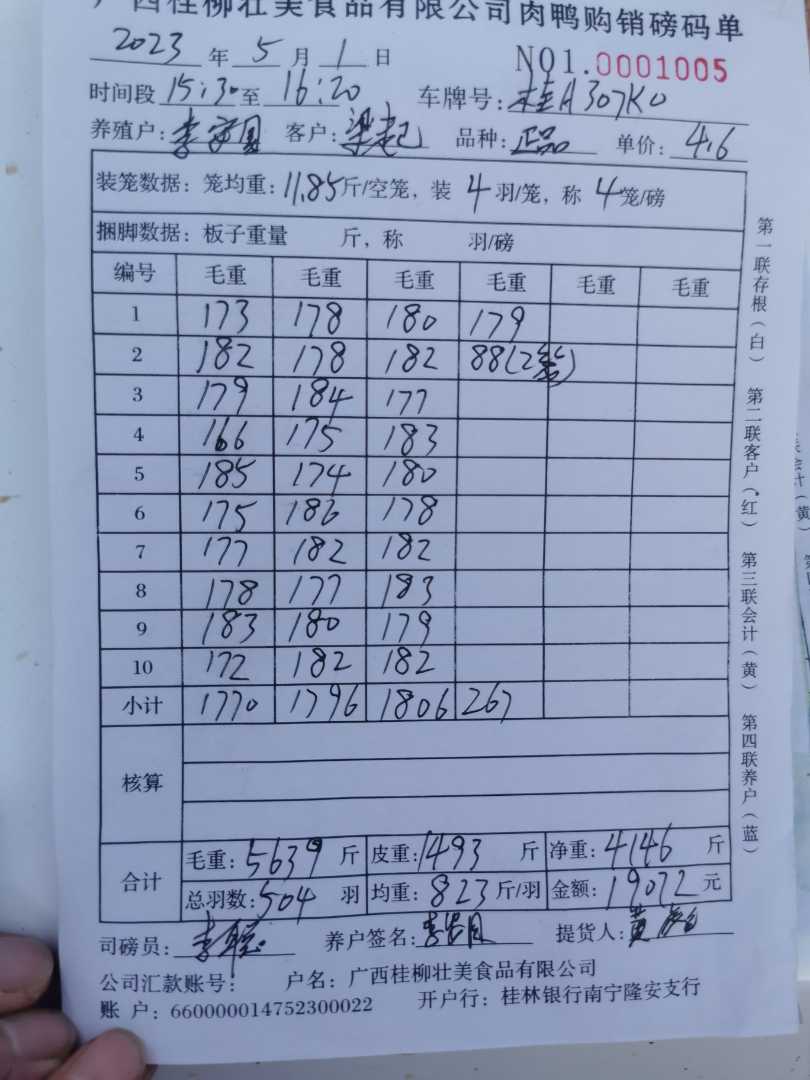 广西桂柳壮美食品有限公司肉鸭购销磅码单
2023 年 5 月 1 日 NO1.0001005
时间段 15:30 至 16:20 车牌号: 桂A307K0
养殖户: 李 客户: 梁 品种: 正品 单价: 4.6
装笼数据: 笼均重: 11.85 斤/空笼, 装 4 羽/笼, 称 4 笼/磅
捆脚数据: 板子重量 斤, 称 羽/磅
编号 毛重 毛重 毛重 毛重 毛重 毛重
1 173 178 180 179
2 182 178 182 88(2笼)
3 179 184 177
4 166 175 183
5 185 174 180
6 175 186 178
7 177 182 182
8 178 177 183
9 183 180 179
10 172 182 182
小计 1770 1796 1806 267
核算
合计 毛重: 5639 斤 皮重: 1493 斤 净重: 4146 斤
总羽数: 504 羽 均重: 823 斤/羽 金额: 19072 元
司磅员: 李 养户签名: 李 提货人: 黄
公司汇款账号: 户名: 广西桂柳壮美食品有限公司
账 户: 660000014752300022 开户行: 桂林银行南宁隆安支行
第一联存根(白) 第二联客户(红) 第三联会计(黄) 第四联养户(蓝)